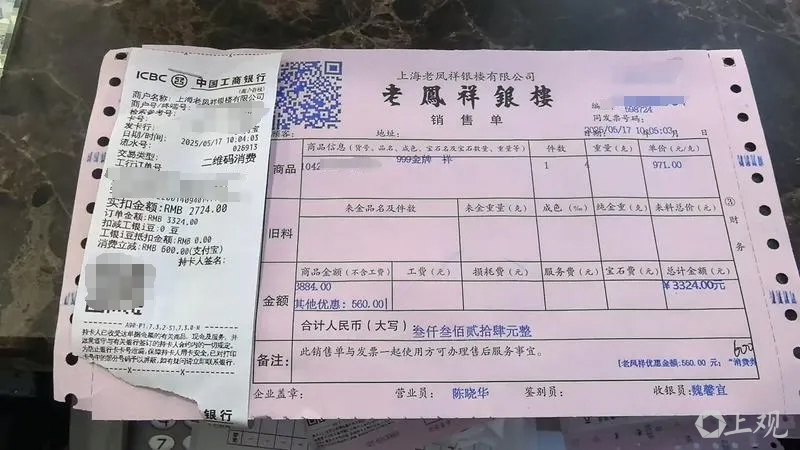 ICBC 中国工商银行
(商户存根)
商户名称:上海老凤祥银楼有限公司
商户号/终端号:
检索参考号:
卡号:
发卡行:
日期/时间: 2025/05/17 10:04:03
流水号: 026913
交易类型: 二维码消费
工行订单号:
实扣金额:RMB 2724.00
订单金额:RMB 3324.00
扣减工银i豆:0 豆
工银i豆抵扣金额:RMB 0.00
消费立减:RMB 600.00(支付宝)
持卡人签名:
银行
上海老凤祥银楼有限公司
老鳳祥銀樓
销售单
598724
同发票号码:
2025/05/17 10:05:03
月 日
顾客: 地址:
商品 商品信息(货号、品名、成色、宝石名及宝石数量、重量等) 件数 重量(克) 单价(元/克)
1042 999金牌 祥 1 4 971.00
旧料 来金品名及件数 来金重量(克) 成色(‰) 纯金重(克) 来料总价(元)
金额 商品金额(不含工费) 工费(元) 损耗费(元) 服务费(元) 宝石费(元) 总计金额(元)
3884.00 ¥3324.00元
其他优惠: 560.00
合计人民币(大写) 叁仟叁佰贰拾肆元整
备注: 此销售单与发票一起使用方可办理售后服务事宜。
600
[老凤祥优惠金额:560.00 元; "消费券
企业盖章: 营业员: 陈晓华 鉴别员: 收银员: 魏馨宜
③财务
上观